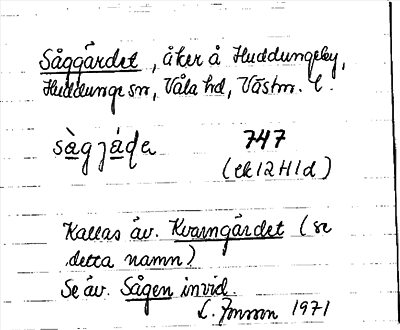 Såggärdet, åker å Huddungeby,
Huddunge sn, Våla hd, Västm. l.
sàgjáḍa 747
(ek 12 H 1 d)
Kallas äv. Kvarngärdet (se
detta namn)
Se äv. Sågen invid.
1971